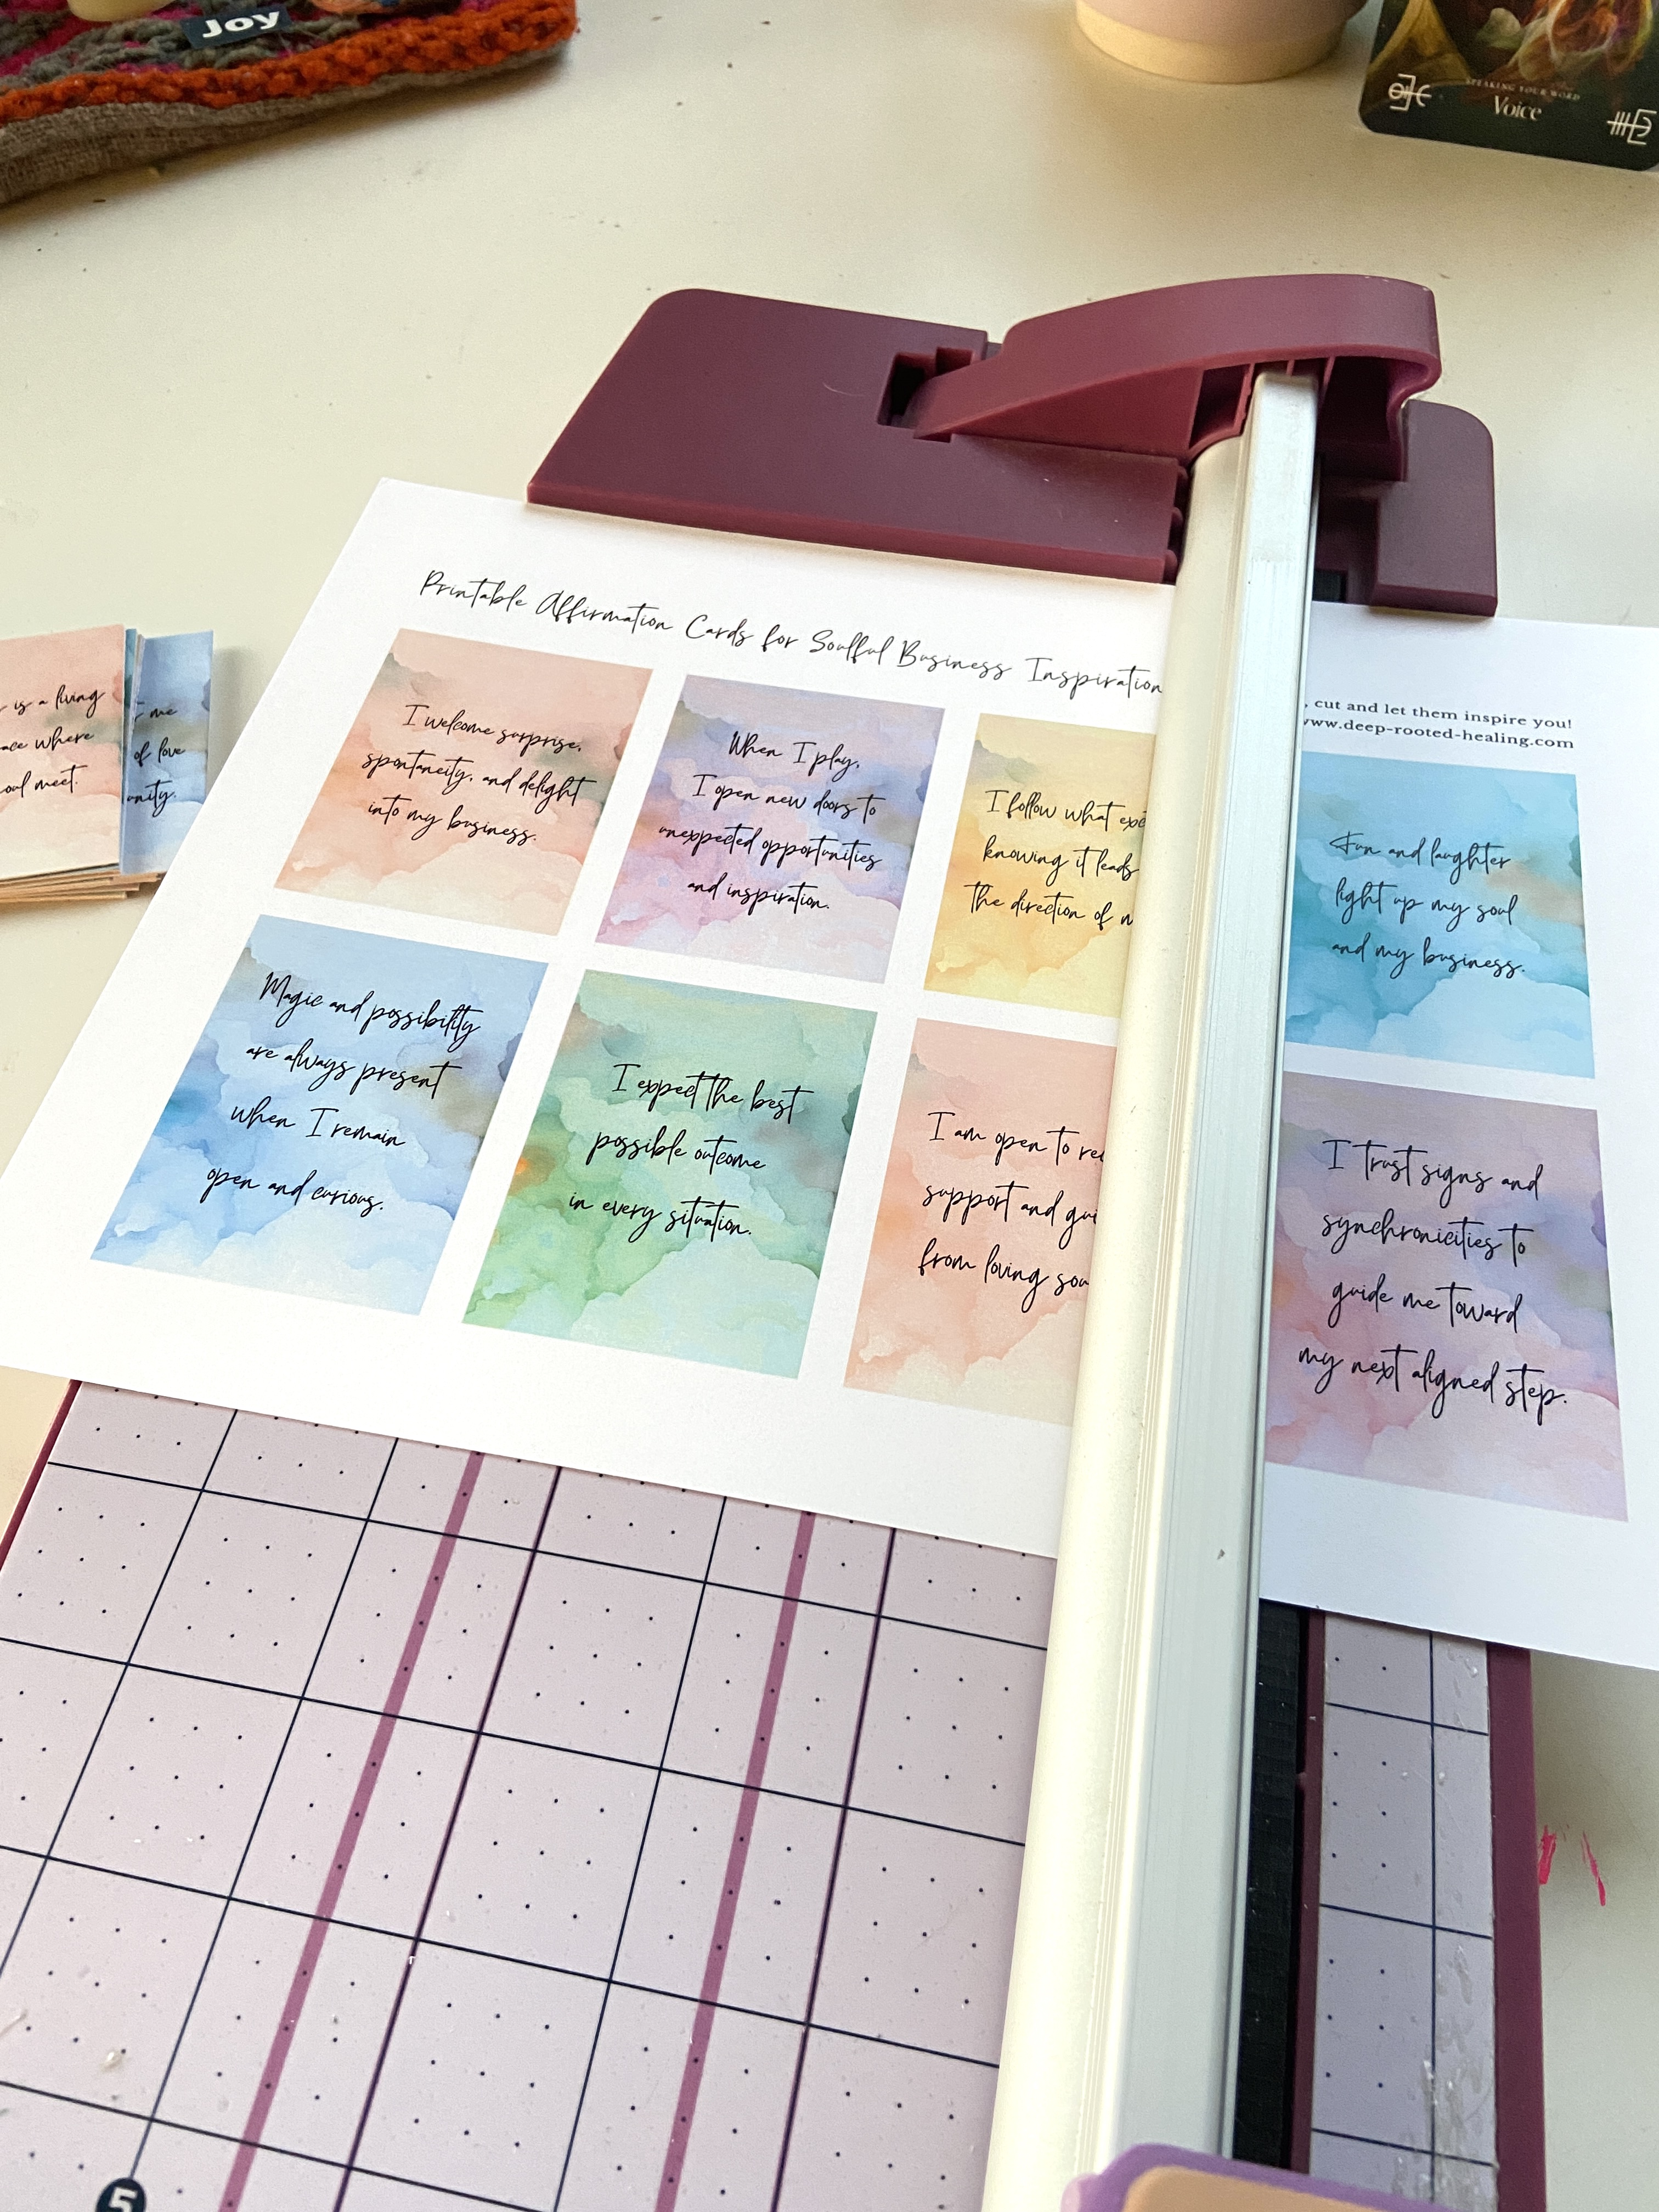 Joy
SPEAKING YOUR WORD
Voice
Printable Affirmation Cards for Soulful Business Inspiration
, cut and let them inspire you!
www.deep-rooted-healing.com
I welcome surprise,
spontaneity, and delight
into my business.
When I play,
I open new doors to
unexpected opportunities
and inspiration.
I follow what
knowing it leads
the direction of
Fun and laughter
light up my soul
and my business.
Magic and possibility
are always present
when I remain
open and curious.
I expect the best
possible outcome
in every situation.
I am open to
support and
from loving
I trust signs and
synchronicities to
guide me toward
my next aligned step.
is a living
where
meet.
me
of love
5